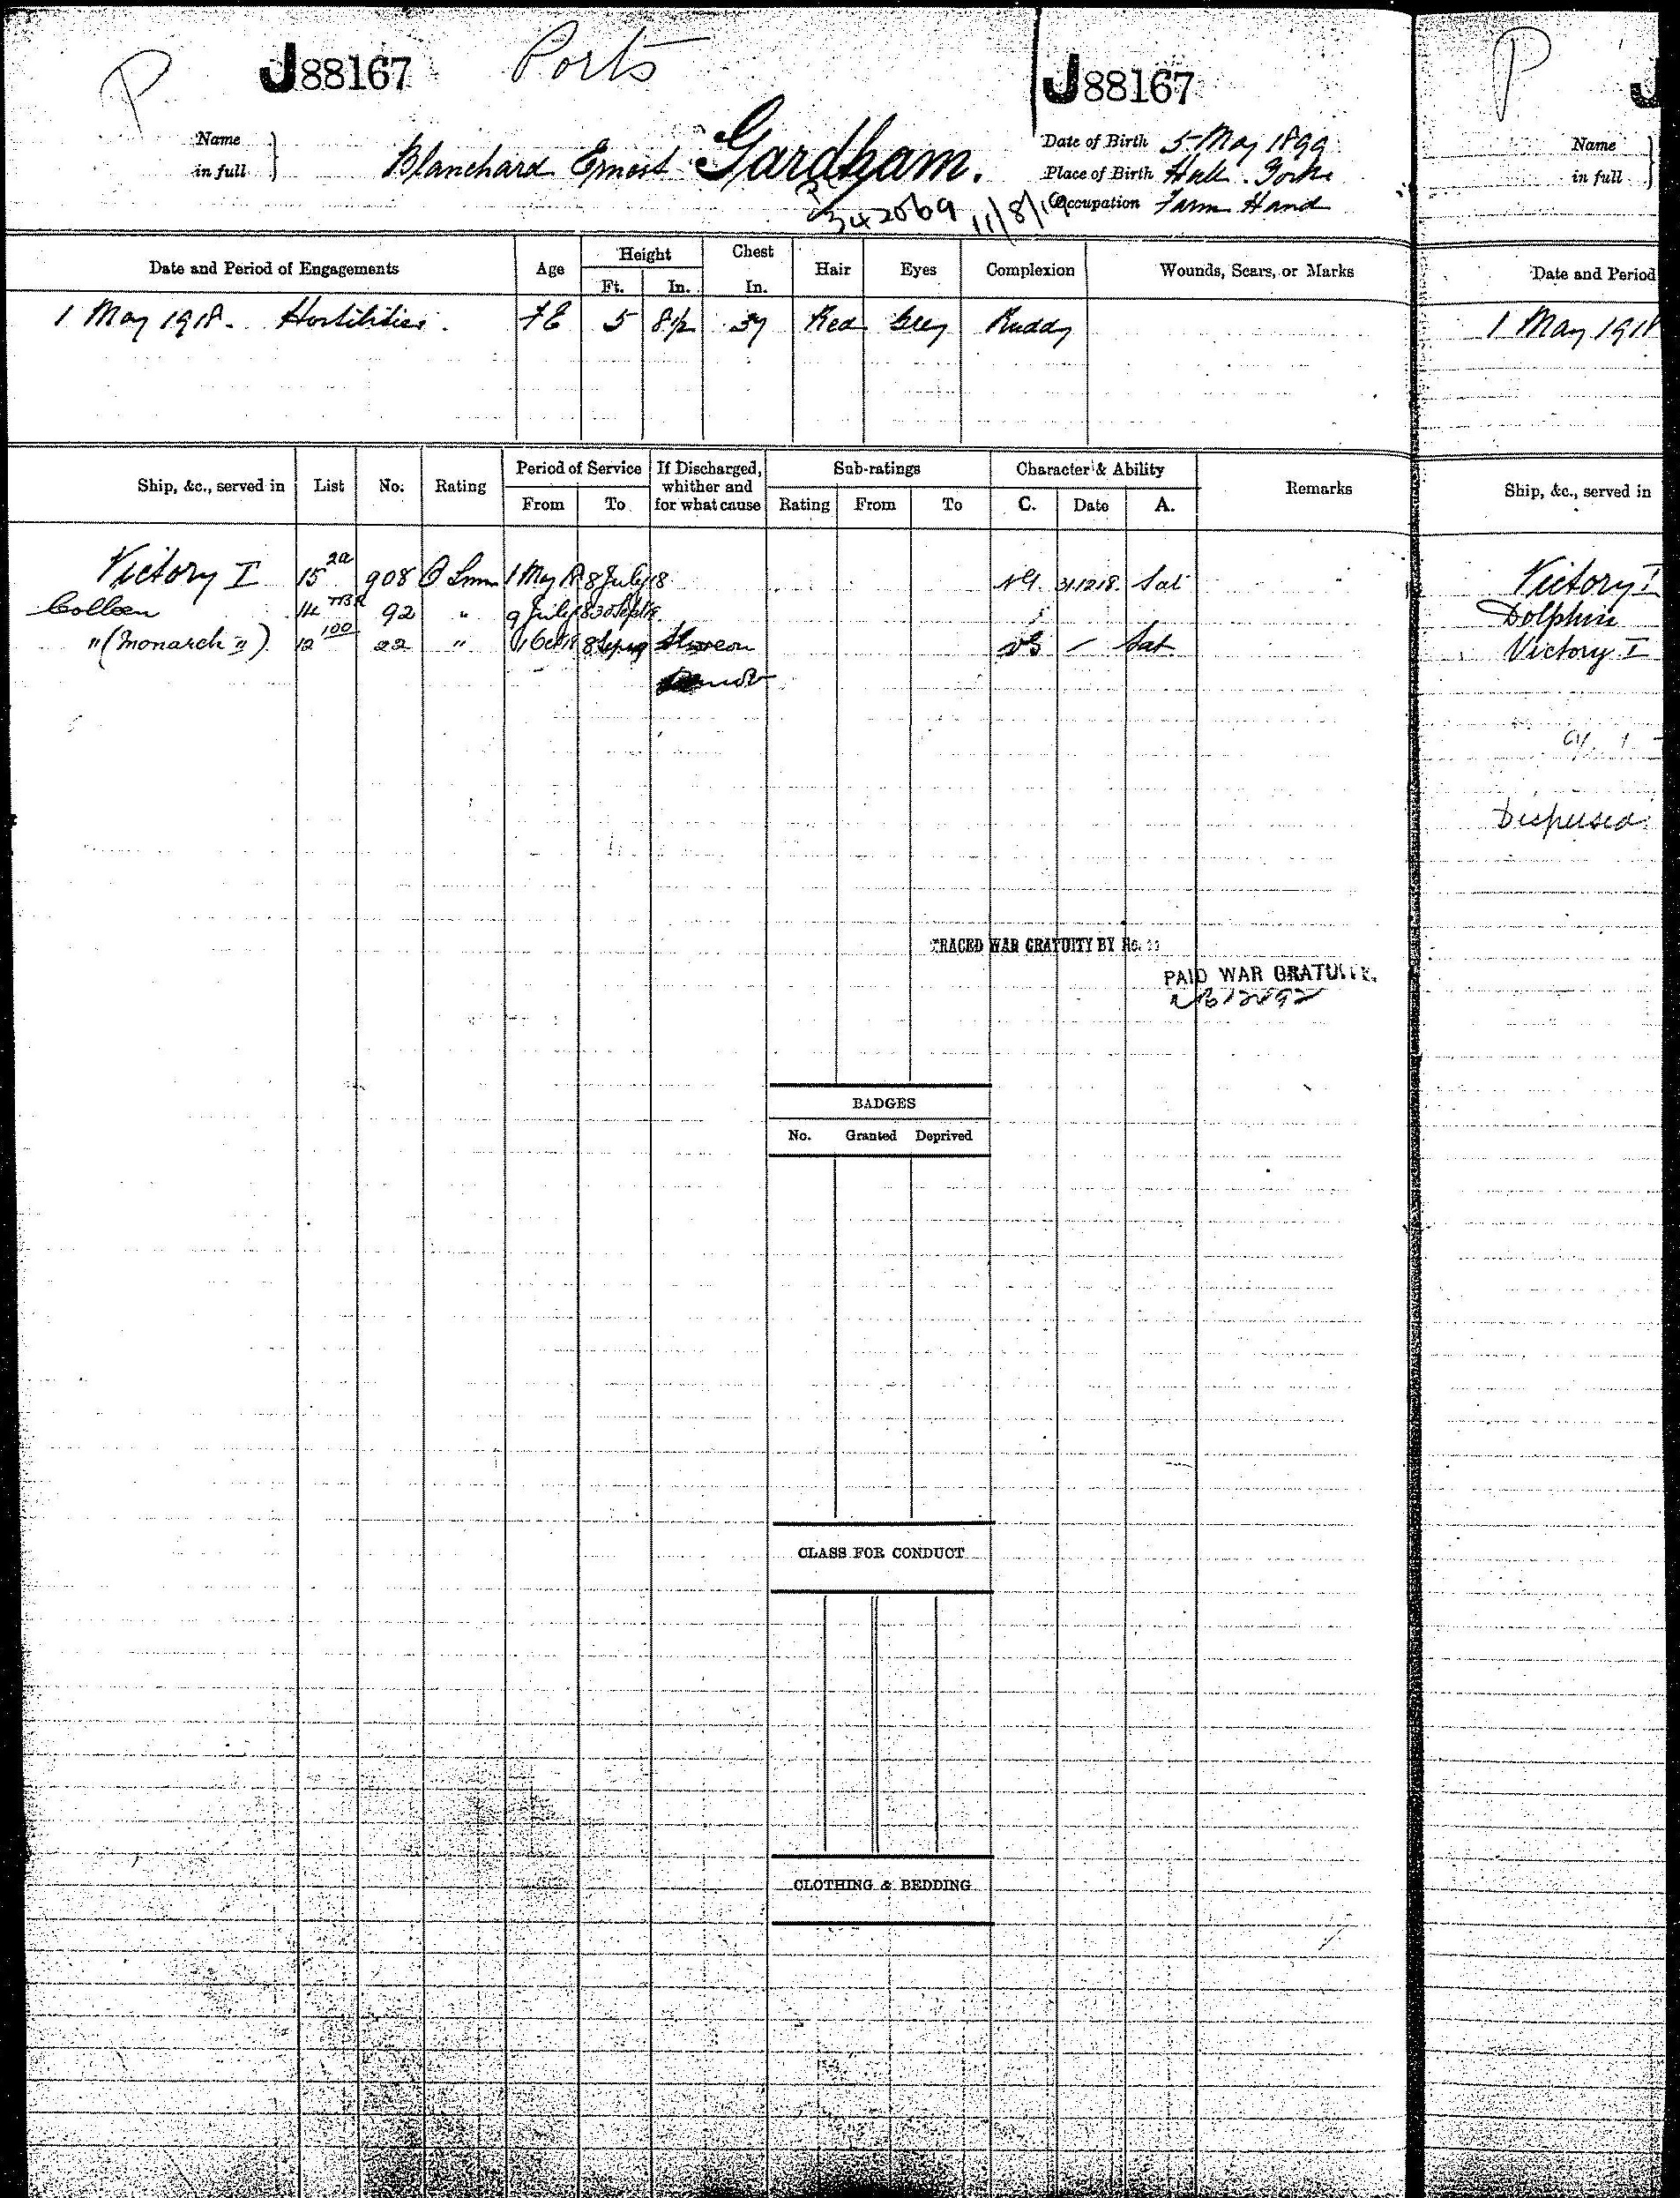 P J88167 Ports J88167
Name in full } Blanchard Ernest Gardham.
Date of Birth 5 May 1899
Place of Birth Hull. Yorks
Occupation Farm Hand
342569 11/8/19
Date and Period of Engagements Age Height Ft. In. Chest In. Hair Eyes Complexion Wounds, Scars, or Marks
1 May 1918. Hostilities. 5 8½ 37 Red Grey Ruddy
Ship, &c., served in List No. Rating Period of Service From To If Discharged, whither and for what cause Sub-ratings Rating From To Character & Ability C. Date A. Remarks
Victory I 15 2a 908 O Smn 1 May 18 8 July 18 VG. 31.12.18. Sat
Colleen 14 92 " 9 July 18 30 Sept 18.
" (Monarch II) 12 100 22 " 1 Oct 18 8 Sep 19 VG — Sat
TRACED WAR GRATUITY BY No.
PAID WAR GRATUITY.
BADGES
No. Granted Deprived
CLASS FOR CONDUCT
CLOTHING & BEDDING
P J
Name in full }
Date and Period
1 May 1918
Ship, &c., served in
Victory I
Dolphin
Victory I
Dispersed